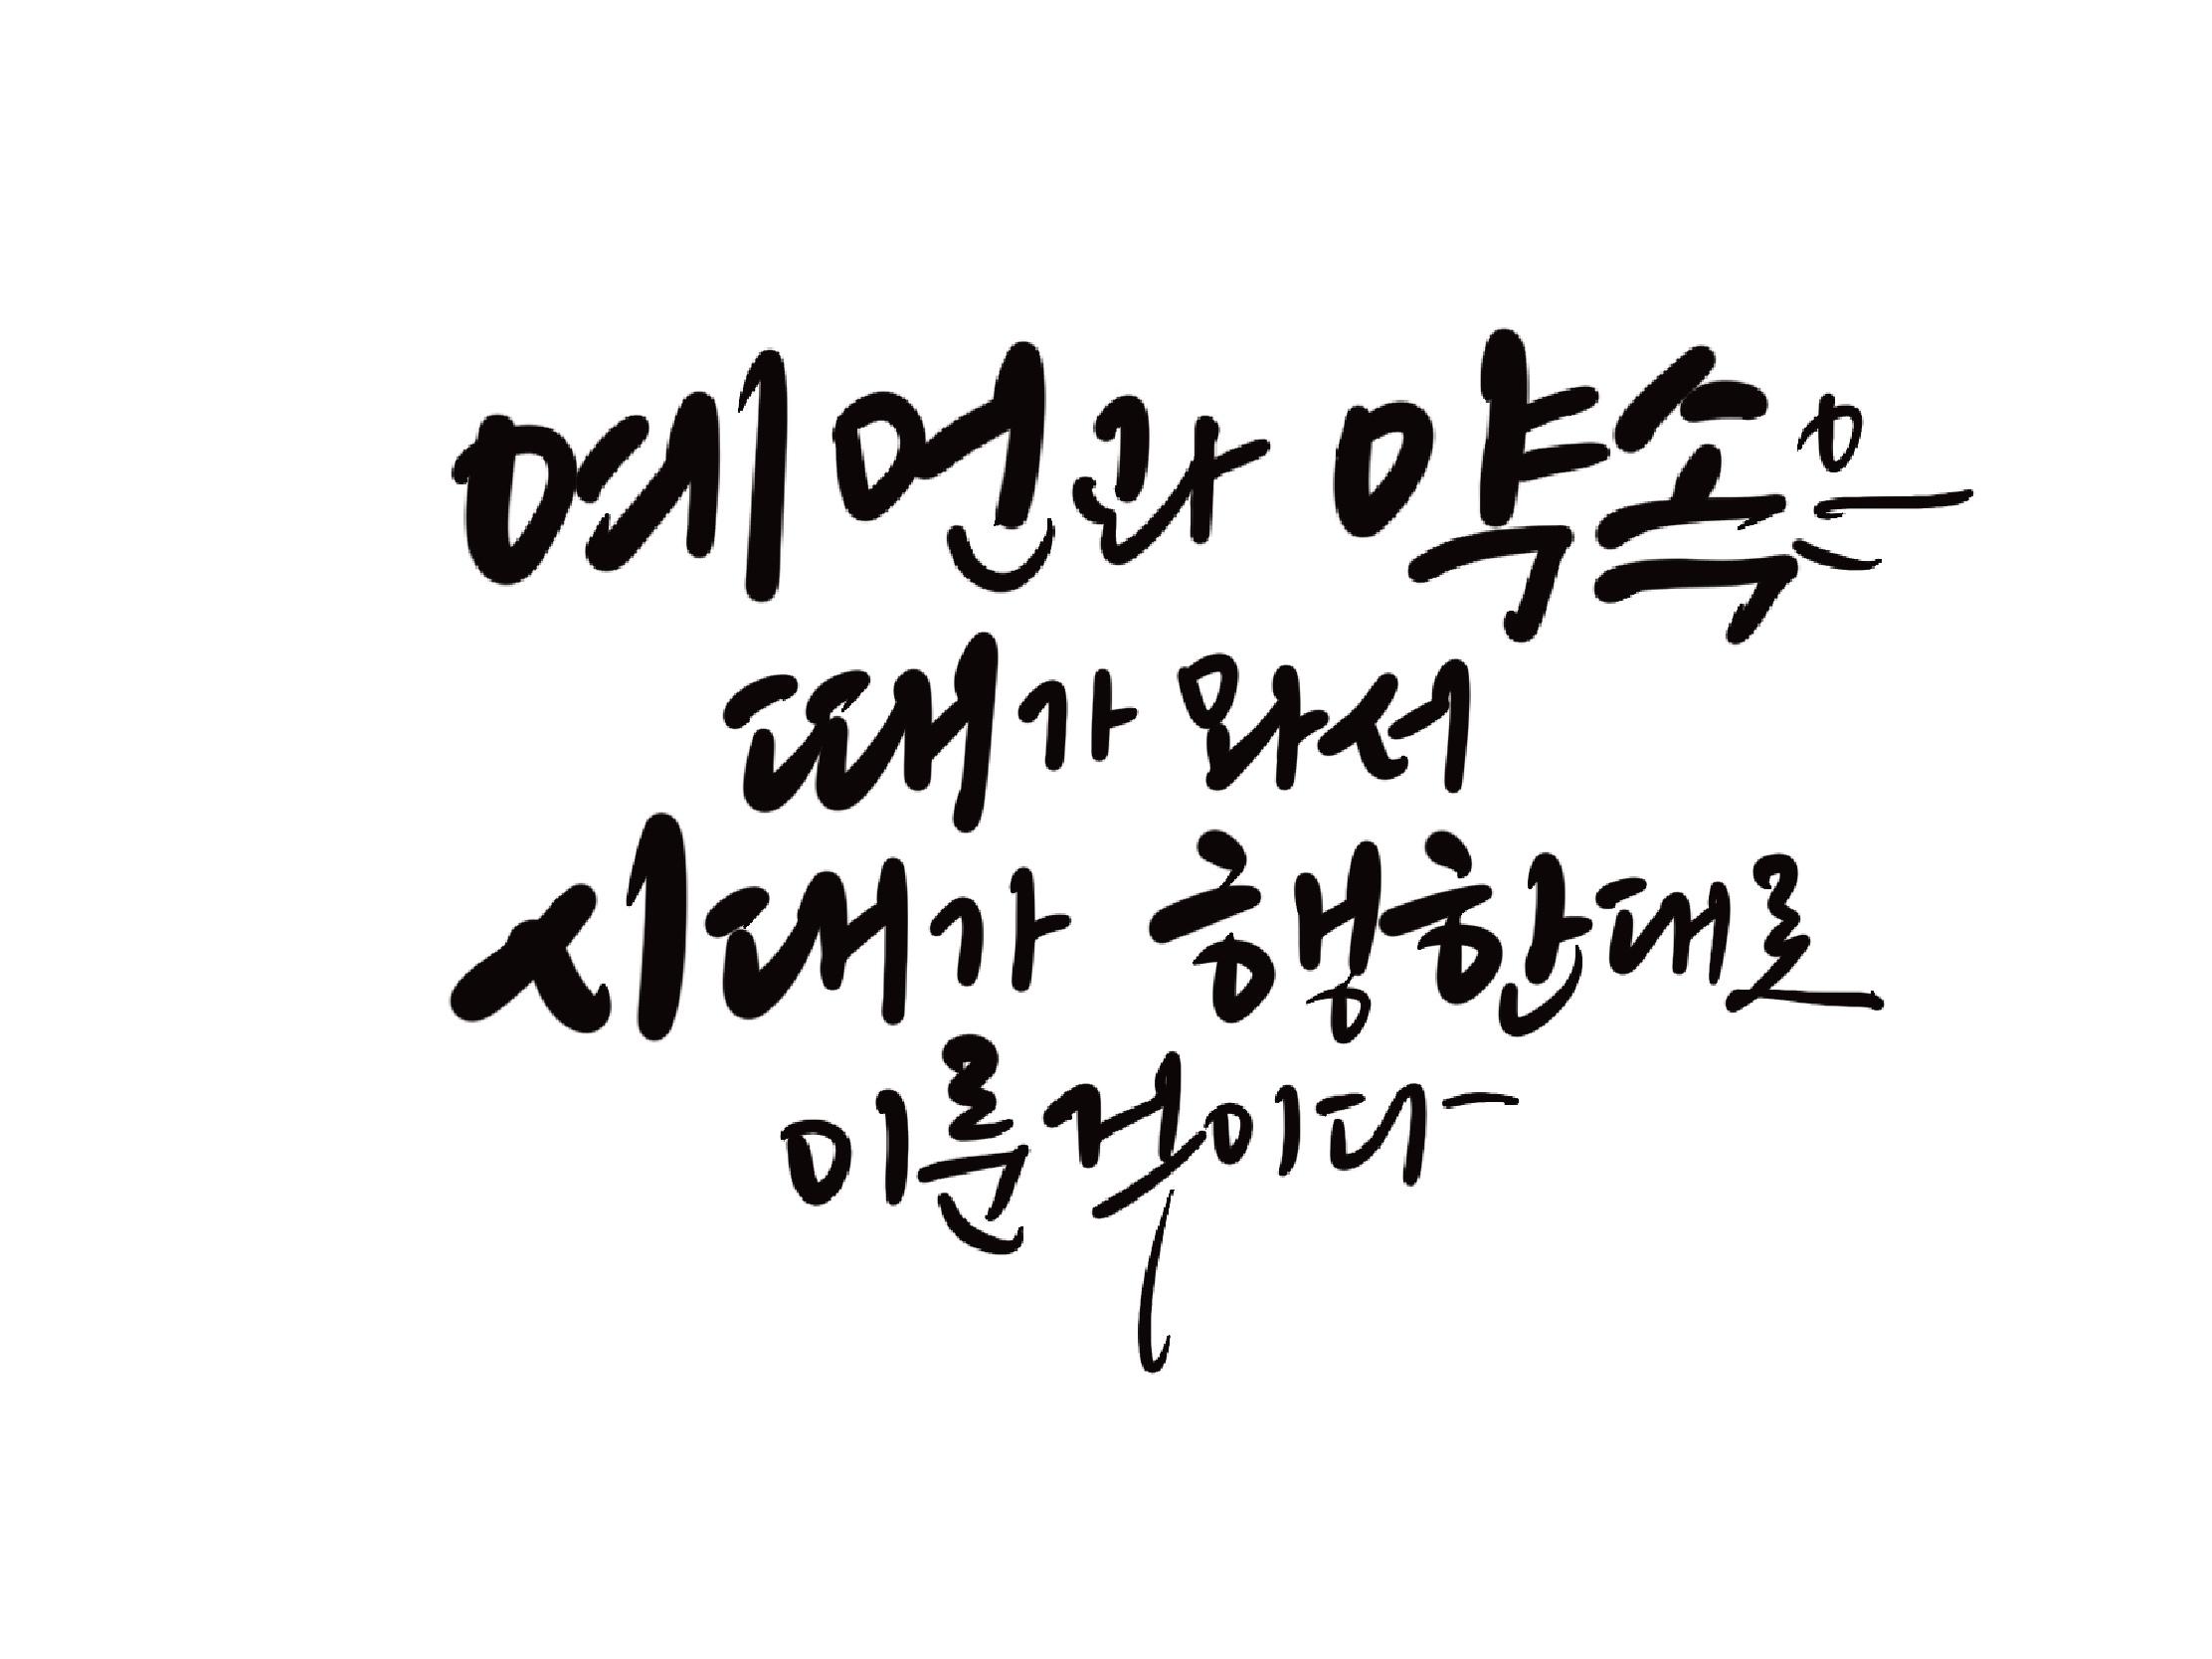 예언과 약속은
때가 와서
시대가 행한대로
이룬것이다